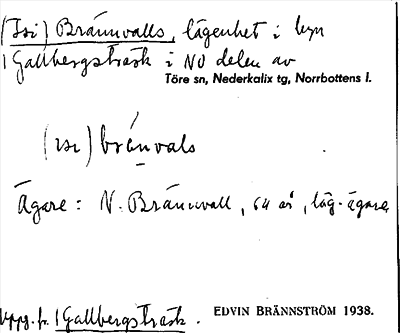 (Isi) Brännvalls, lägenhet i byn
1 Gallbergsträsk i NO delen av
Töre sn, Nederkalix tg, Norrbottens l.
(ısı) bränvals
Ägare: N. Brännvall, 64 år, läg.-ägare
Uppg. fr. 1 Gallbergsträsk. EDVIN BRÄNNSTRÖM 1938.